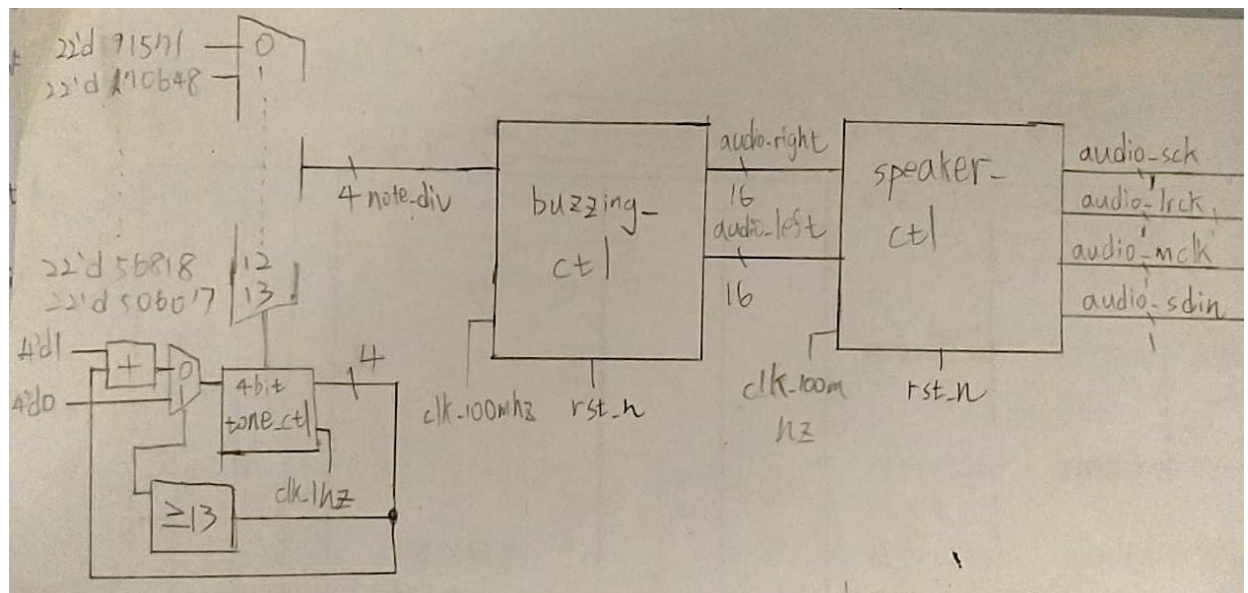 22'd 191571
0
22'd 170648
1
22'd 56818
12
22'd 506017
13
4'd1
+
0
4'd0
1
4bit
tone_ctl
4
clk_1hz
≥13
4 note_div
buzzing_
ctl
clk_100mhz
rst_n
audio_right
16
audio_left
16
speaker_
ctl
clk_100m
hz
rst_n
audio_sck
1
audio_lrck
1
audio_mclk
1
audio_sdin
1